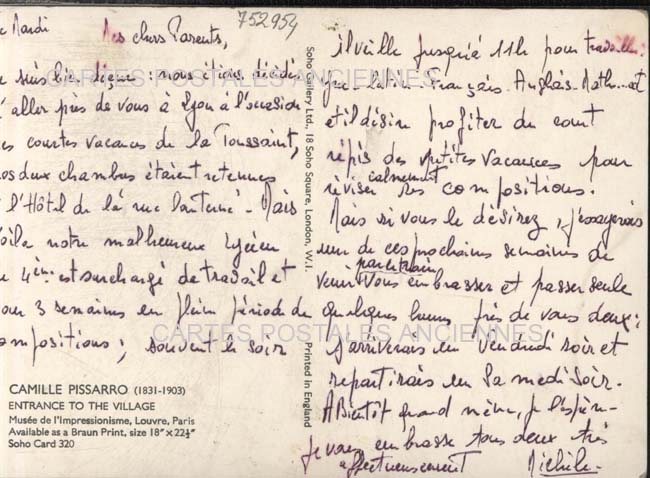 752954
Mardi
Mes chers Parents,
suis bien déçue : nous étions décidés
d'aller près de vous à Lyon à l'occasion
des courtes vacances de la Toussaint,
nos deux chambres étaient retenues
à l'Hôtel de la rue Lanterne - Mais
voilà notre malheureux lycéen
de 4ème est surchargé de travail et
pour 3 semaines en plein période de
compositions ; souvent le soir
CAMILLE PISSARRO (1831-1903)
ENTRANCE TO THE VILLAGE
Musée de l'Impressionisme, Louvre, Paris
Available as a Braun Print, size 18" × 22½"
Soho Card 320
Soho Gallery Ltd., 18 Soho Square, London, W.I.
Printed in England
il veille jusqu'à 11h pour travailler :
Latin Français. Anglais. Math... et
et il désire profiter du court
répis des petites vacances pour
réviser calmement ses compositions.
Mais si vous le désirez, j'essayerais
une de ces prochaines semaines de
venir par le train vous embrasser et passer seule
quelques heures près de vous deux ;
j'arriverais le Vendredi soir et
repartirais le Samedi soir.
A Bientôt quand même, je l'espère -
Je vous embrasse tous deux très
affectueusement Michèle -
CARTES POSTALES ANCIENNES
CARTES POSTALES ANCIENNES